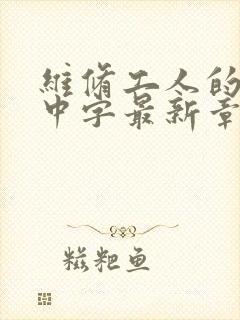 維脩工人的
中字最新章
糍粑鱼